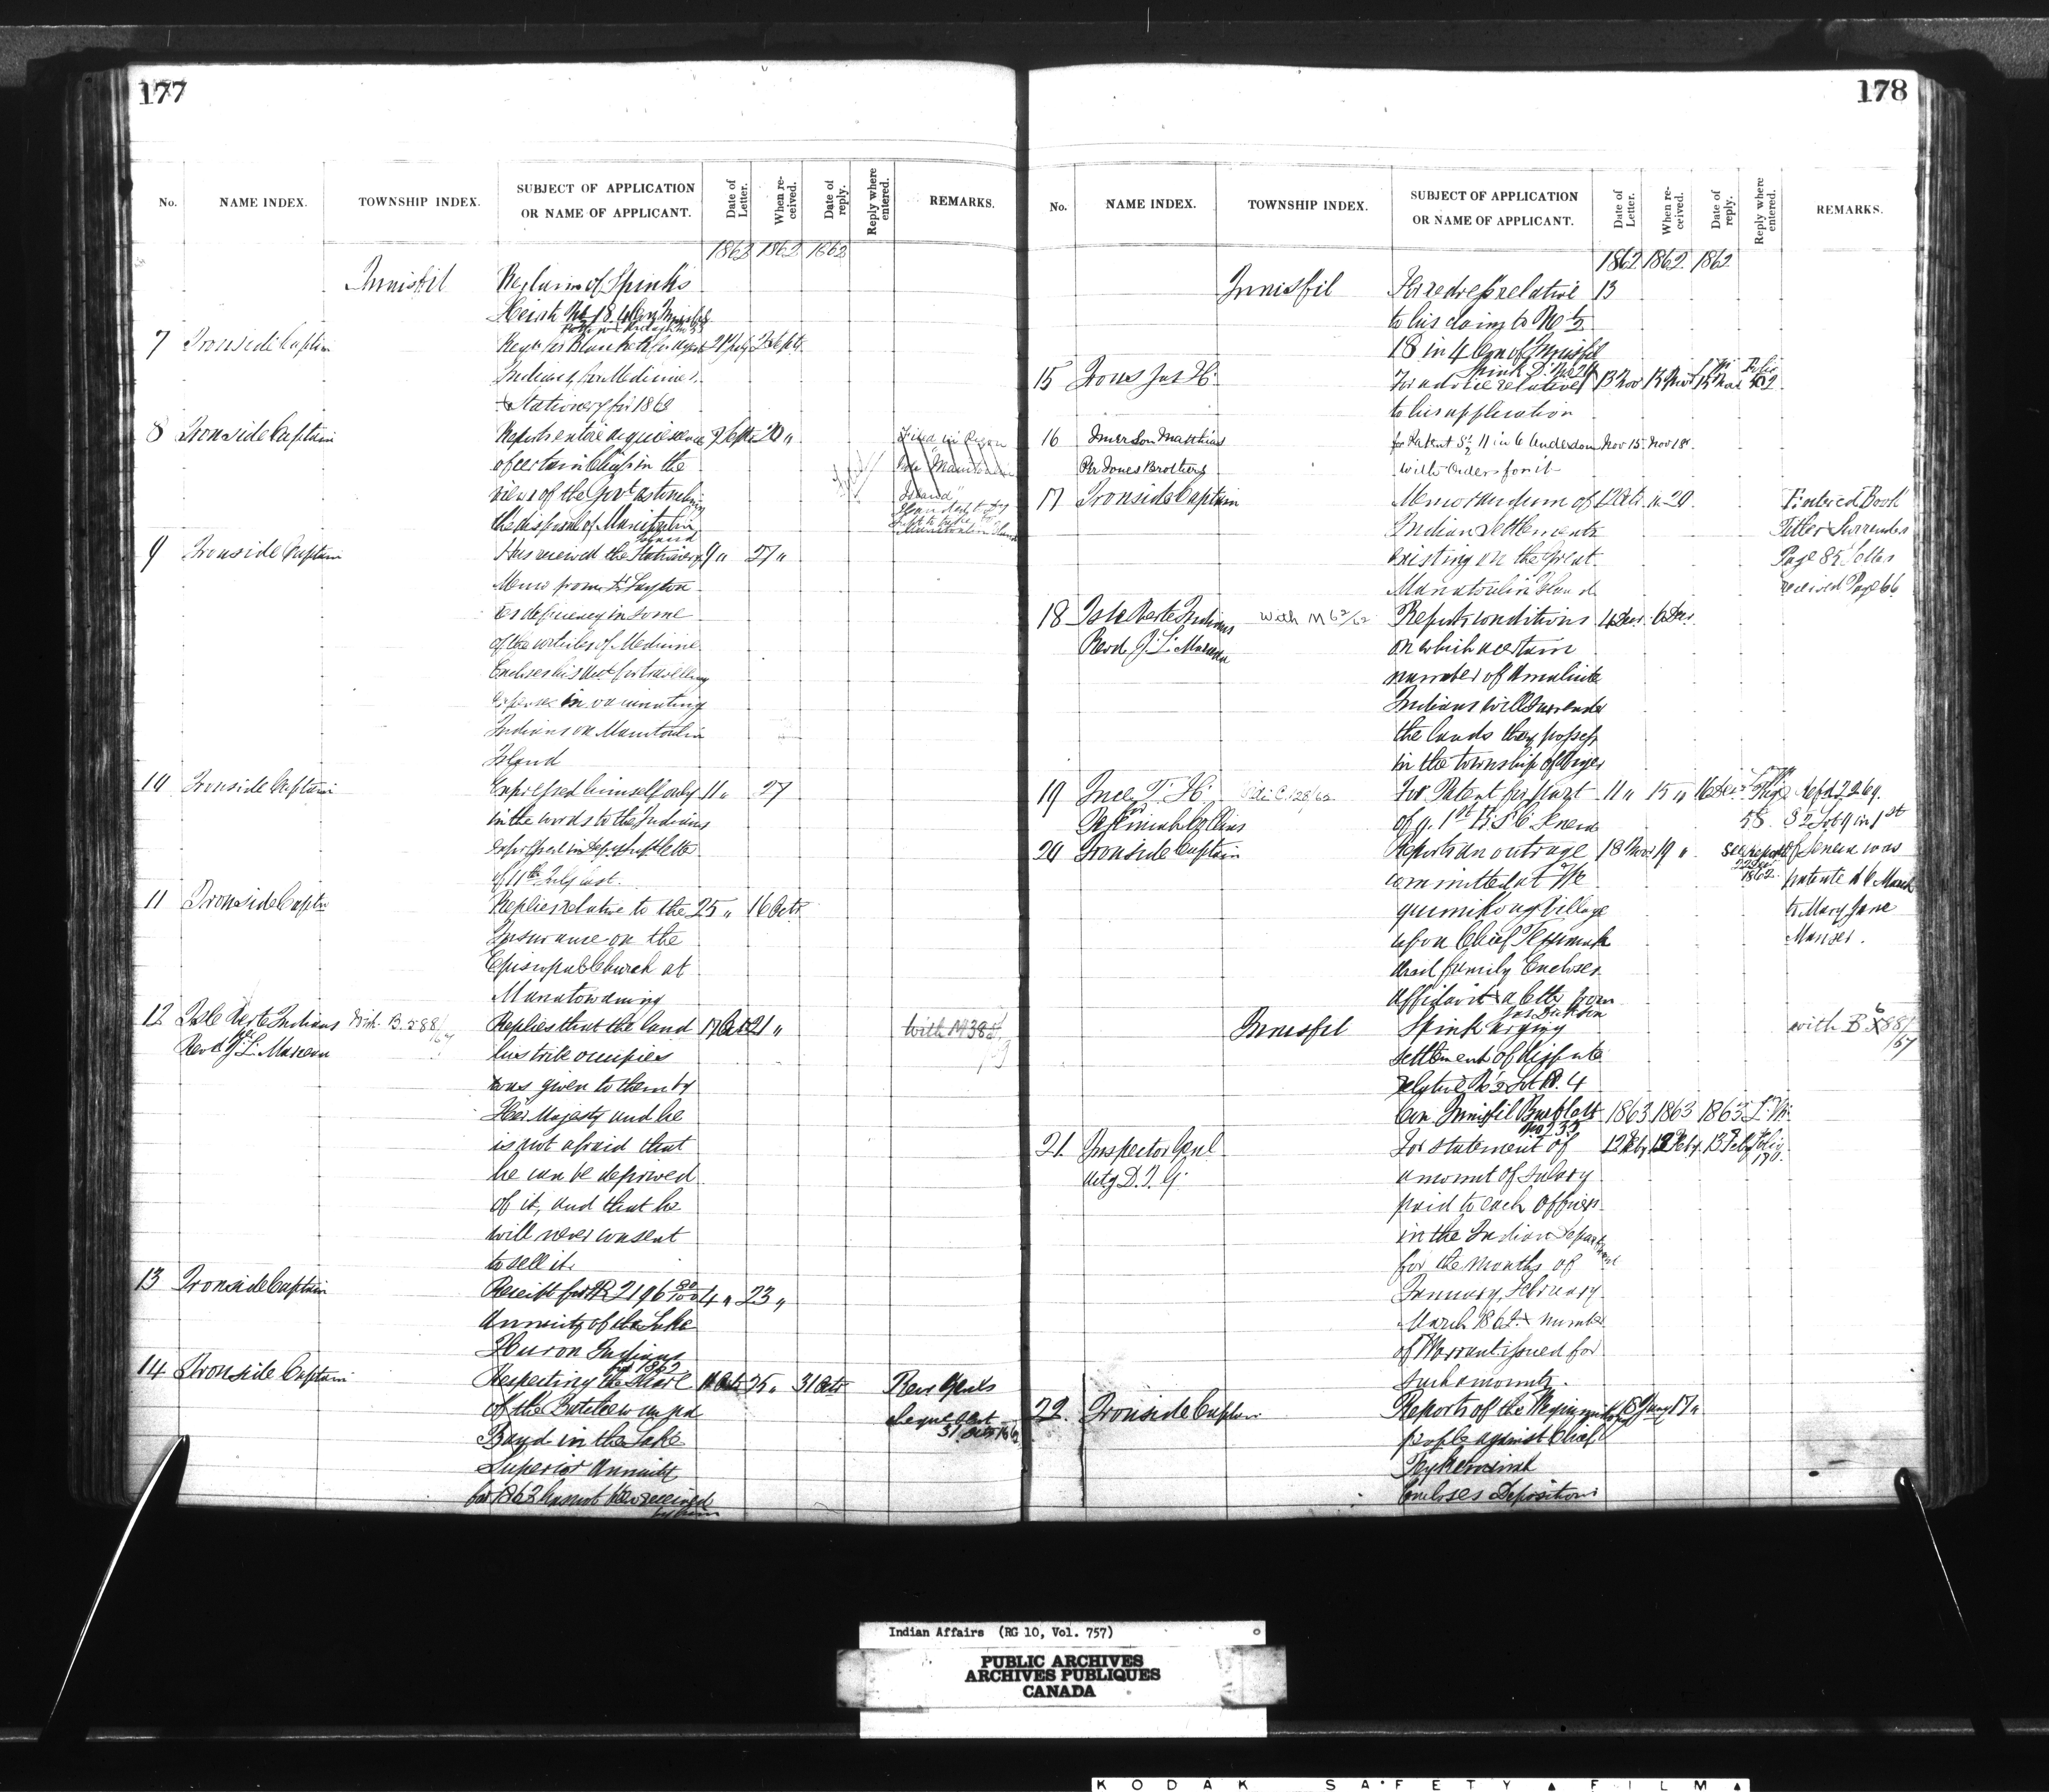 177
No.
NAME INDEX.
TOWNSHIP INDEX.
SUBJECT OF APPLICATION
OR NAME OF APPLICANT.
Date of Letter.
When received.
Date of reply.
Reply where entered.
REMARKS.
1862 1862 1862
Innisfil
of Spink's
18 4 Con Innisfil
7 Ironside Captain
Indians, for Medicines
& Stationery for 186
8 Ironside Captain
Reports entire acquiescence Sepr 20 "
of certain Chiefs in the
views of the Govt as touching
the disposal of Manitoulin
Island
"Manitoulin
Island"
9 Ironside Captain
Has received the Stationery 9 " 27 "
Memo from Dr Layton
deficiency in some
of the articles of Medicine
Encloses his acct for travelling
expenses in vaccinating
Indians on Manitoulin
Island
10 Ironside Captain
Expressed himself only 11 " 27
in the words to the Indians
expressed in Depts letter
of 11th July last.
11 Ironside Captn
Replies relative to the 25 " 16 Octr
Insurance on the
Episcopal Church at
Manatowaning
12 Isle Verte Indians With B. 588/67
Revd J. L. Marceau
Replies that the land 17 Oct 21 "
his tribe occupies
was given to them by
Her Majesty and he
is not afraid that
he can be deprived
of it, and that he
will never consent
to sell it.
With M 38
13 Ironside Captain
Receipt for 2196 80/100 4 " 23 "
Annuity of the Lake
Huron Indians
for 1862
14 Ironside Captain
Respecting the Share Oct 25 " 31 Octr
of the Batchewanga
Band in the Lake
Superior Annuity
for 1862 has not been received
by him
Rec Genls
Cheque sent
31 Octr 1862
178
No.
NAME INDEX.
TOWNSHIP INDEX.
SUBJECT OF APPLICATION
OR NAME OF APPLICANT.
Date of Letter.
When received.
Date of reply.
Reply where entered.
REMARKS.
1862 1862 1862
Innisfil
For redress relative 13
to his claim to N ½
18 in 4 Con of Innisfil
15 Irons Jas H.
For advice relative 13 Nov 13 Nov 15 Nov
to his application
16 Emerson Matthias
Per Jones Brothers
for Patent S½ 11 in 6 Anderdon Nov 15. Nov 18.
with Orders for it
17 Ironside Captain
Memorandum of Oct. 20.
Indian Settlements
existing on the Great
Manatoulin Island
Entered Book
Letter Surrenders
Page 85 Letters
received Page 66
18 Isle Verte Indians
Revd J. L. Marceau
With M 62/62
Reports conditions 4 Decr. 6 Decr.
on which a certain
number of Amalicite
Indians will surrender
the lands they possess
in the township of Viger
19 Ince T. H.
for
Jessimah Collins
Vide C. 128/62
For Patent for part 11 " 15 " 16 Decr
of 9. 1st R. S. C Seneca
58.
Refd 2269.
S ½ Lot 9 in 1st
of Seneca was
patented 6 March
to Mary Jane
Manser.
20 Ironside Captain
Reports an outrage 18 Nov 19 "
committed at We
quimikong Village
upon Chief Tehkumah
and family Encloses
affidavit & a letter from
see report
22 Decr
1862
Innisfil
Jas Dickson
Spink urging
settlement of dispute
relative N ½ Lot 18. 4
Con Innisfil
with B 588/67
1863 1863 1863
21 Inspector Genl
Actg D. I. G.
For statement of 12 Feby 13 Feby 13 Feby Folio
amount of Salary
paid to each Officer
in the Indian Department
for the months of
January, February
March 1862 & number
of Warrant issued for
such amounts.
22. Ironside Captain
Reports of the 17 "
people against Chief
Encloses Depositions
Indian Affairs (RG 10, Vol. 757)
PUBLIC ARCHIVES
ARCHIVES PUBLIQUES
CANADA
KODAK SAFETY FILM